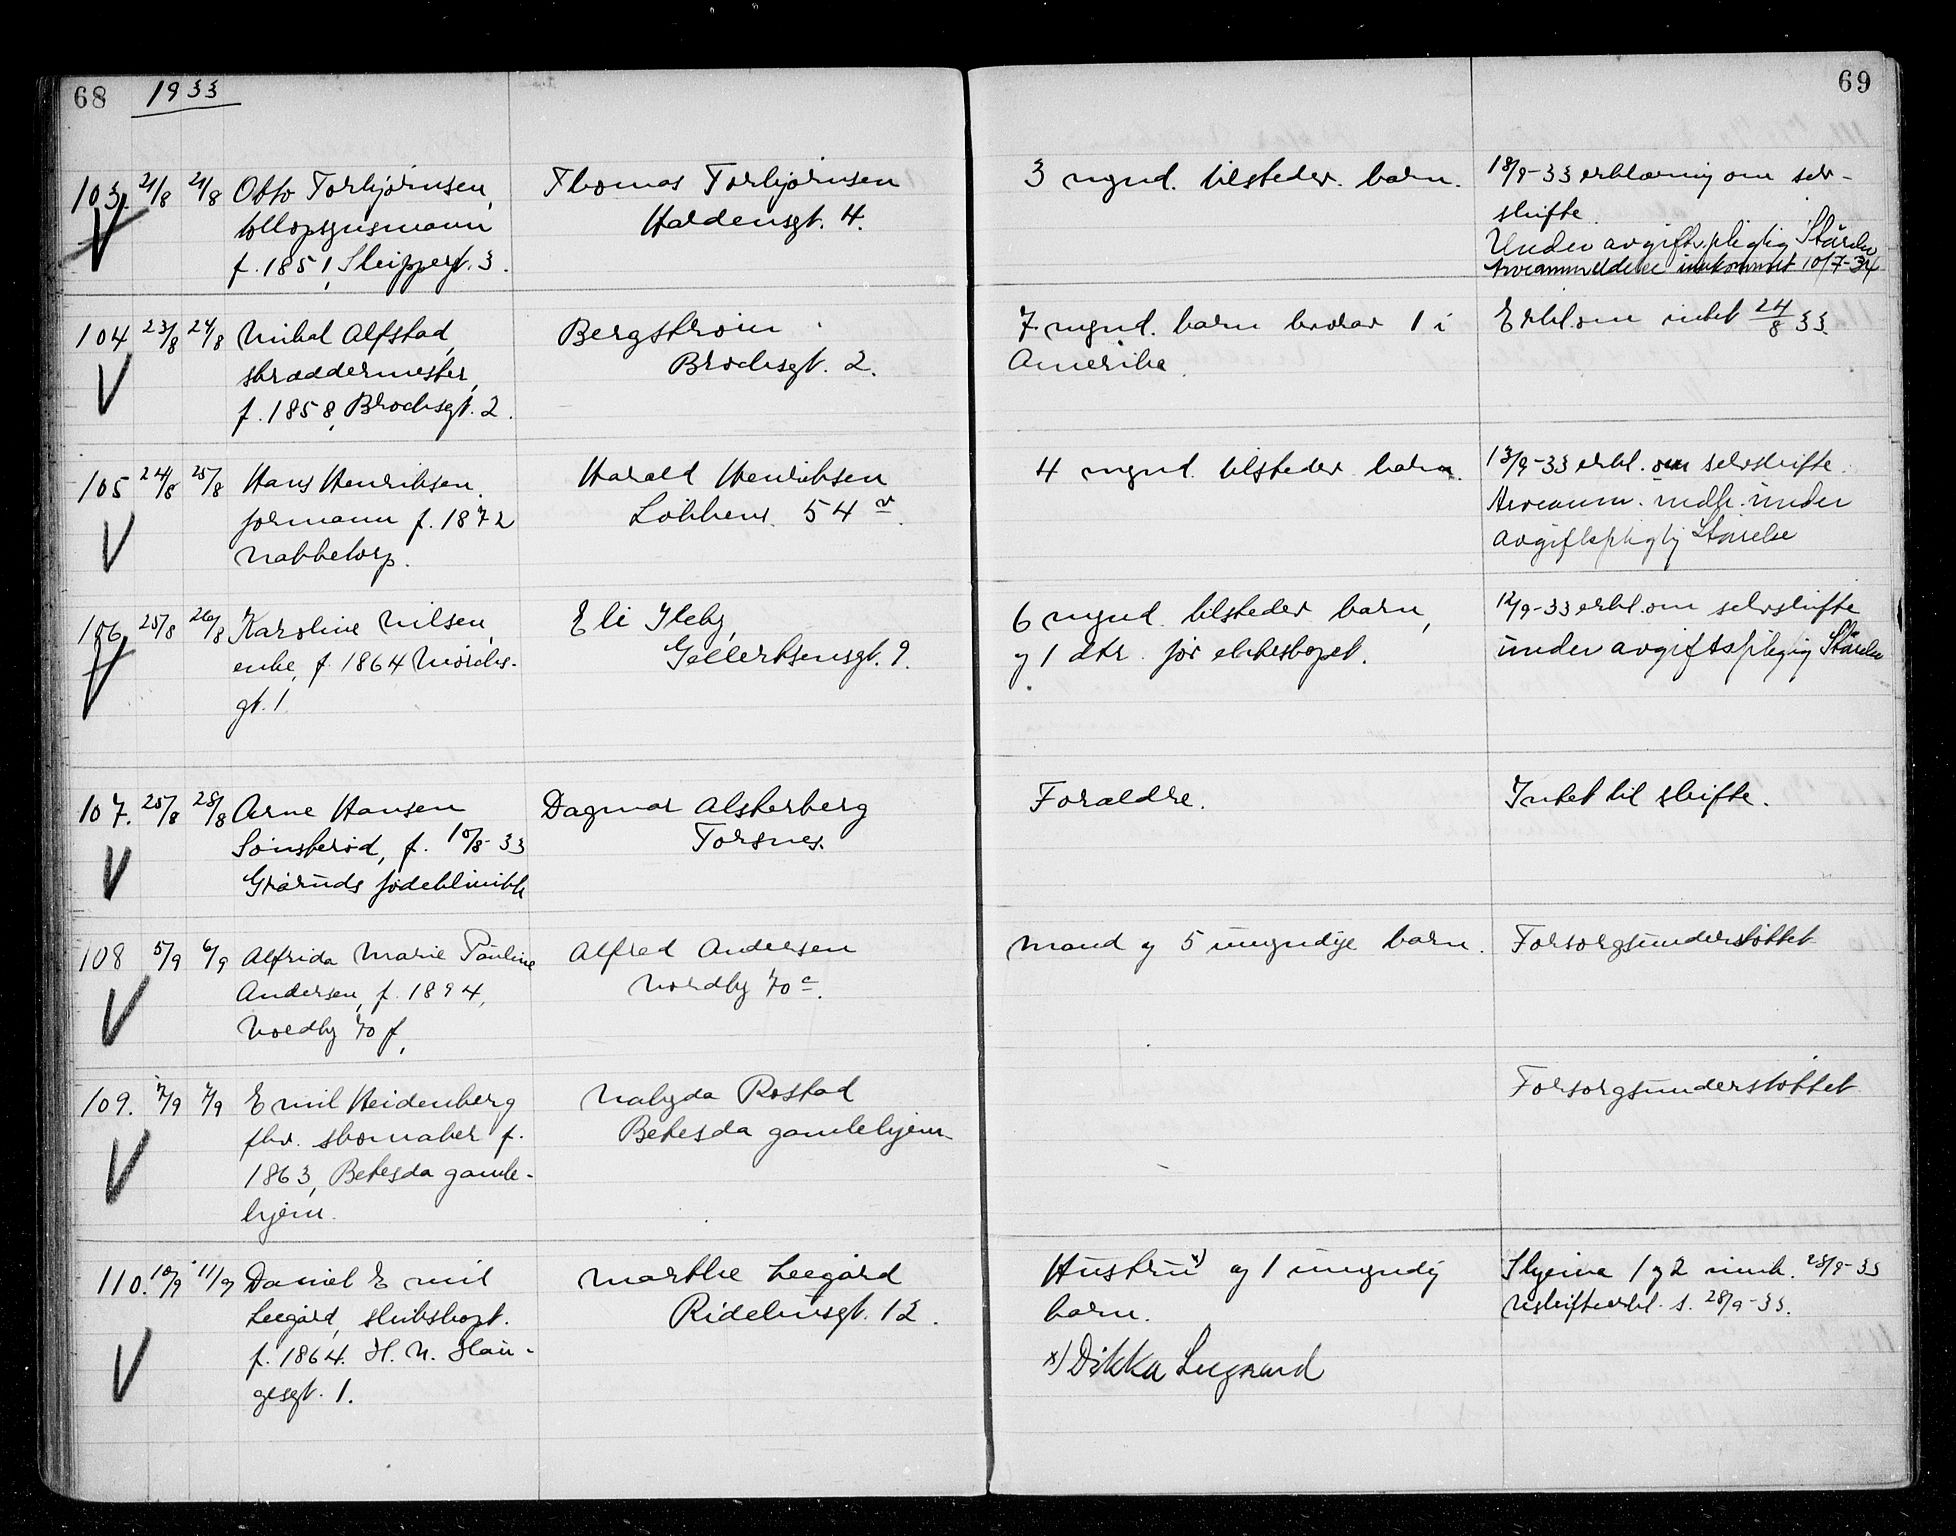 68 1933
69
103. 21/8 21/8 Otto Torbjørnsen, Thomas Torbjørnsen 3 mynd. tilsteder. barn. 18/9-33 erklæring om selv-
tollopsynsmann Haldensgt. 4. skifte.
f. 1851, Sleippegt. 3. Under avgiftspligtig Størelse
Arveanmeldelse innkommet 10/7-34
104 23/8 24/8 Mikal Alfstad, Bergstrøm 7 mynd. barn hvorav 1 i Erkl. om intet 24/8 33.
skræddermester, Brochsgt. 2. Amerika.
f. 1858, Brochsgt. 2.
105 24/8 25/8 Hans Henriksen. Harald Henriksen 4 mynd. tilsteder barn. 13/9-33 erkl. om selvskifte.
formann f. 1872 Løkkens 54 v. Arveanm. indk. under
Nabbetorp. avgiftspligtig Størrelse
106. 25/8 26/8 Karoline Nilsen, Eli Ileby, 6 mynd. tilsteder barn, 12/9-33 erkl. om selvskifte
enke, f. 1864 Mørchs- Gellertsensgt. 9. og 1 dtr. før ektskapet. under avgiftspligtig Størelse
gt. 1.
107. 25/8 28/8 Arne Hansen Dagmar Alsterberg Foræidre. Intet til skifte.
Sønsterød, f. 10/8-33 Torsnes.
Grøruds fødeklinikk
108 5/9 6/9 Alfrida Marie Pauline Alfred Andersen Mand og 5 umyndige barn. Forsorgsunderstøttet
Andersen, f. 1894, Nordby 70 c.
Nordby 70 f,
109. 7/9 7/9 Emil Heidenberg Rostad Forsorgsunderstøttet
fhv. skomaker f. Betesda gamlehjem
1863, Betesda gamle-
hjem.
110. 10/9 11/9 Daniel Emil Marthe Leegård Hustru x) og 1 umyndig Skjema 1 og 2 innk. 28/9-33
Leegård, skibskapt. Ridehusgt. 12. barn. Uskifteerkl. s. 28/9-33.
f. 1864. H. N. Hau- x) Dikka Leegaard
gesgt. 1.